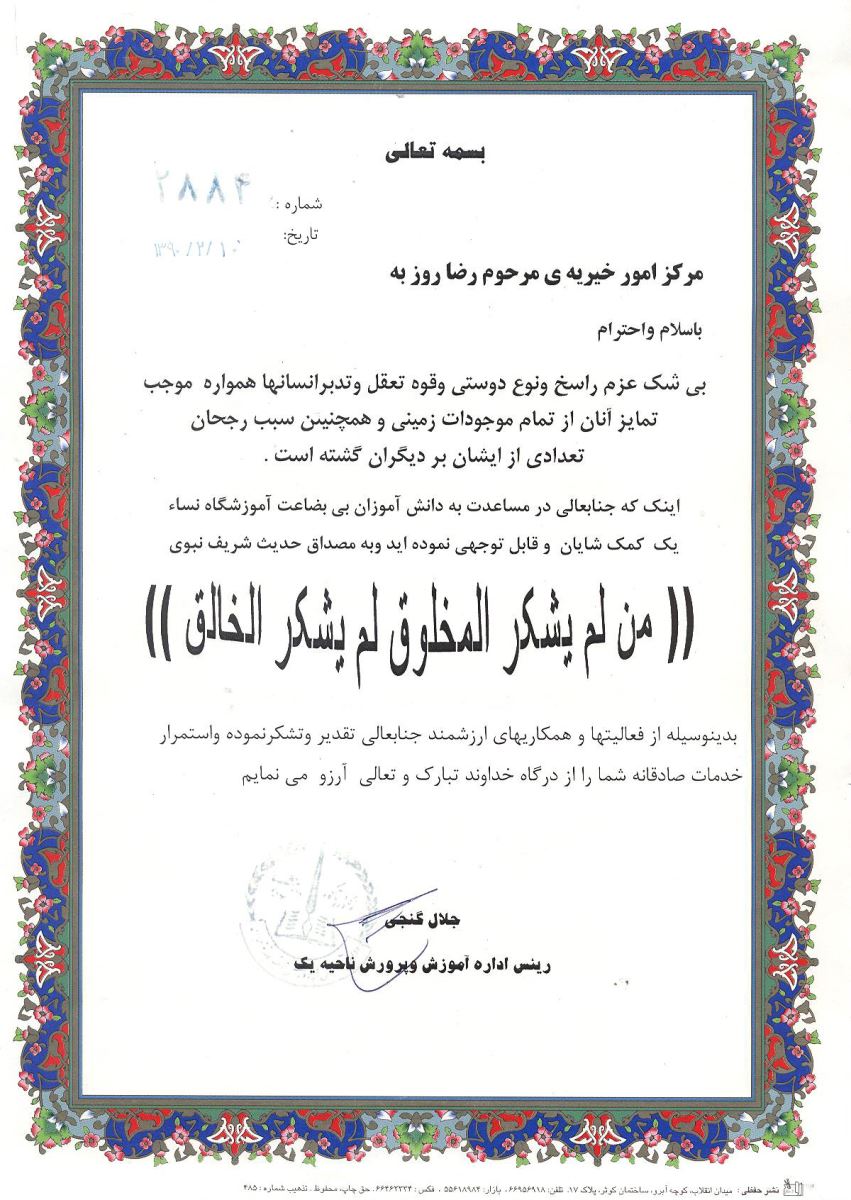 بسمه تعالی
شماره : ۲۸۸۴
تاریخ: ۱۳۹۰/۲/۱۰
مرکز امور خیریه ی مرحوم رضا روز به
باسلام واحترام
بی شک عزم راسخ ونوع دوستی وقوه تعقل وتدبرانسانها همواره موجب
تمایز آنان از تمام موجودات زمینی و همچنین سبب رجحان
تعدادی از ایشان بر دیگران گشته است .
اینک که جنابعالی در مساعدت به دانش آموزان بی بضاعت آموزشگاه نساء
یک کمک شایان و قابل توجهی نموده اید وبه مصداق حدیث شریف نبوی
(( من لم یشکر المخلوق لم یشکر الخالق ))
بدینوسیله از فعالیتها و همکاریهای ارزشمند جنابعالی تقدیر وتشکرنموده واستمرار
خدمات صادقانه شما را از درگاه خداوند تبارک و تعالی آرزو می نمایم
جلال گنجی
رینس اداره آموزش وپرورش ناحیه یک
نشر حفظی : میدان انقلاب، کوچه آبرو، ساختمان کوثر، پلاک ۱۷. تلفن: ۶۶۹۵۶۹۱۸ . بازار: ۵۵۶۱۸۹۸۴ ، فکس : ۶۶۴۶۲۲۲۴. حق چاپ، محفوظ . تذهیب شماره : ۴۸۵